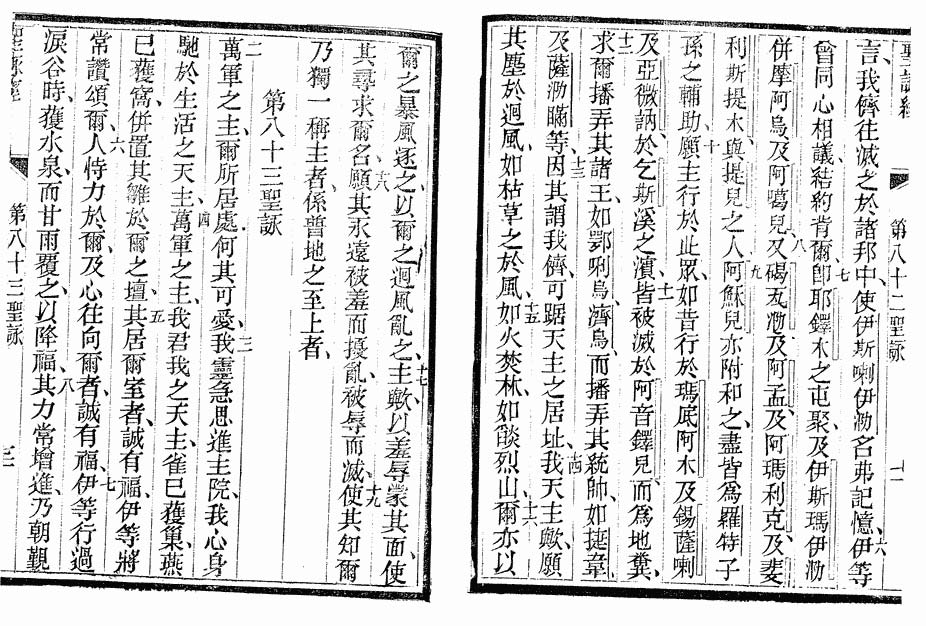 聖詠經
第八十二聖詠
言、我儕往滅之於諸邦中、使伊斯喇伊泐名弗記憶、六伊等
曾同心相議、結約背爾、七卽耶鐸木之屯聚、及伊斯瑪伊泐
併摩阿烏及阿噶兒、八又碣瓦泐及阿孟、及阿瑪利克、及斐
利斯提木、與提兒之人、九阿穌兒亦附和之、盡皆爲羅特子
孫之輔助、十願主行於此眾、如昔行於瑪底阿木及錫薩喇
及亞微訥、於乞斯溪之濱、十一皆被滅於阿音鐸兒、而爲地糞、
十二求爾播弄其諸王、如鄂唎烏、濟烏、而播弄其統帥、如挺韋
及薩泐瞞等、十三因其謂我儕可踞天主之居址、十四我天主歟、願
其塵於迴風、如枯草之於風、十五如火焚林、如燄烈山、十六爾亦以
爾之暴風逐之、以爾之迴風亂之、十七主歟、以羞辱蒙其面、使
其尋求爾名、十八願其永遠被羞而擾亂、被辱而滅、十九使其知爾
乃獨一稱主者、係普地之至上者、
第八十三聖詠
二萬軍之主、爾所居處、何其可愛、三我靈急思進主院、我心身
馳於生活之天主、四萬軍之主、我君我之天主、雀已獲巢、燕
已獲窩、併置其雛於爾之壇、五其居爾室者、誠有福、伊等將
常讚頌爾、六人恃力於爾、及心往向爾者、誠有福、七伊等行過
淚谷時、獲水泉、而甘雨覆之、以降福、八其力常增進、乃朝覲
聖詠經
第八十三聖詠